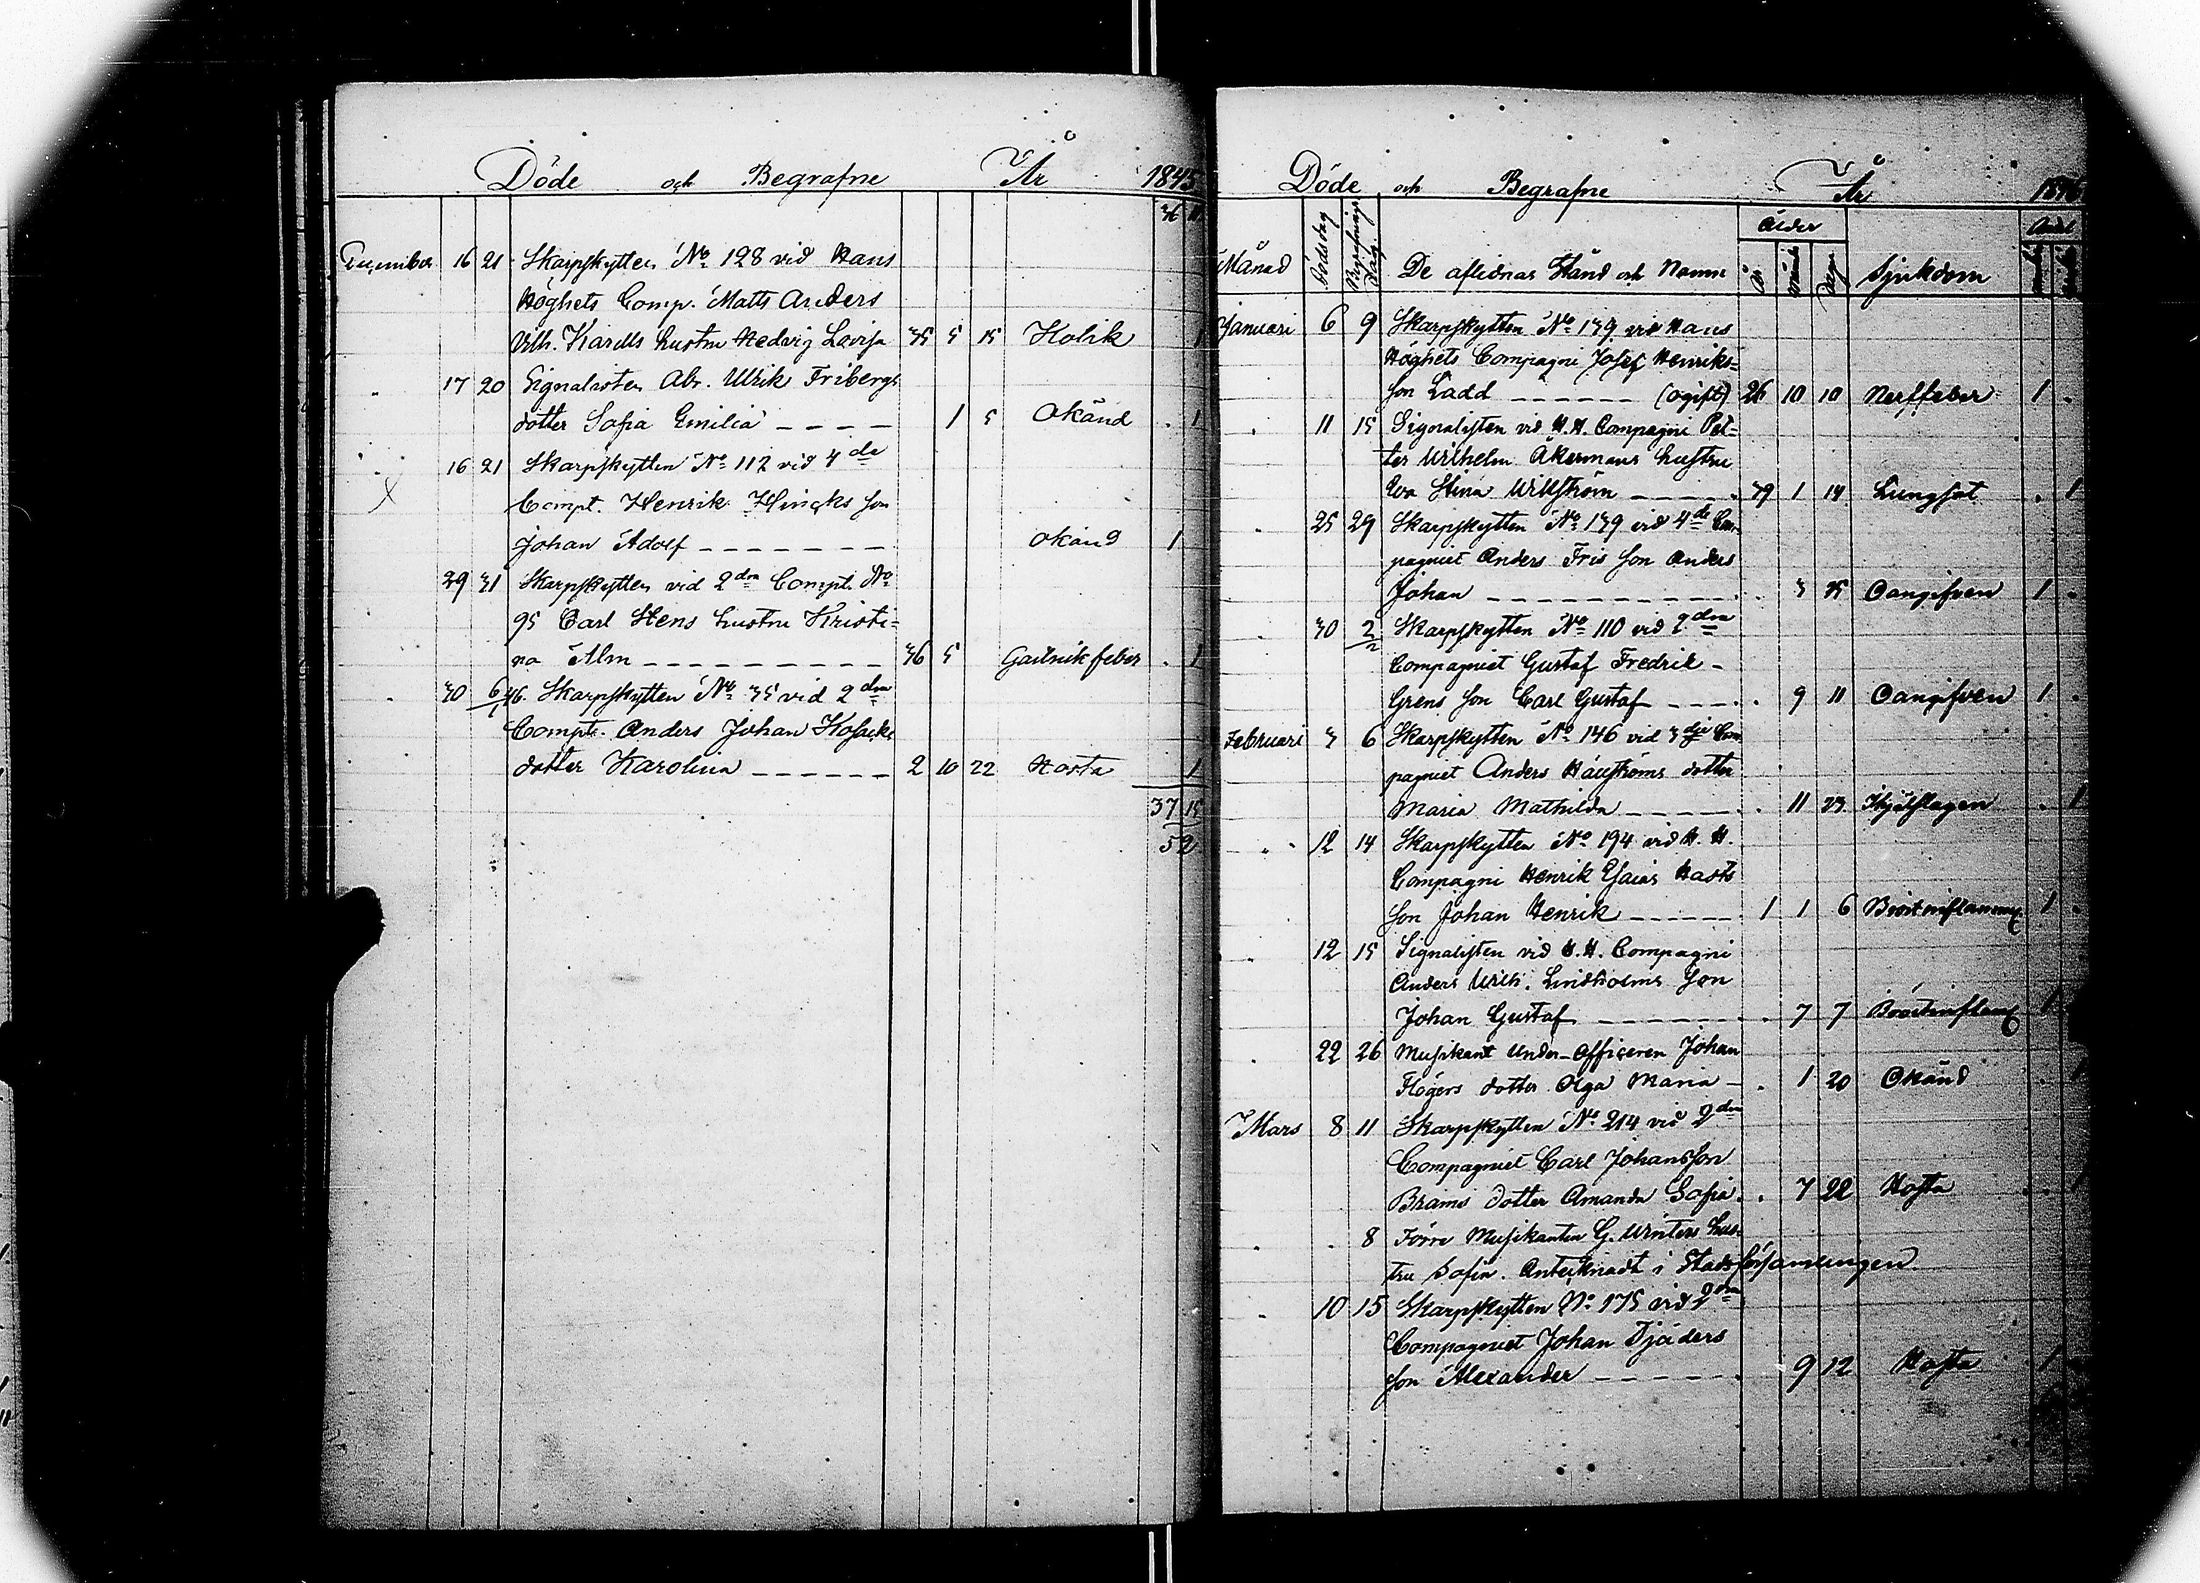 Döde och Begrafne År 1845
36 11
December 16 21 Skarpskytten No 128 vid Hans
Höghets Comp. Matts Anders
Vilh. Karells hustru Hedvig Lovisa 35 5 15 Kolik 1
" 17 20 Signalisten Abr. Ulrik Fribergs
dotter Sofia Emilia – – – – 1 5 Okänd . 1
" 16 21 Skarpskytten No 112 vid 4de
x Compt. Henrik Hincks son
Johan Adolf – – – – – – – Okänd 1
29 31 Skarpskytten vid 2dra Compt. No
95 Carl Stens hustru Kristi=
na Alm – – – – – – – – – 36 5 Gallrik feber . 1
" 30 6/1 46. Skarpskytten No 35 vid 2dra
Compt. Anders Johan Kosacks
dotter Karolina – – – – – – 2 10 22 Hosta 1
37 15
52
Döde och Begrafne År 1846
Månad Dödsdag Begrafnings Dag De aflidnas Stånd och Namn Ålder År Månad Dagar Sjukdom Antal
Januari 6 9 Skarpskytten No 139 vid Hans
Höghets Compagni Josef Henriks=
son Ladd – – – – – – (ogift) 26 10 10 Nerffeber 1 .
" 11 15 Signalisten vid H. H. Compagni Pet=
ter Wilhelm Åkermans hustru
Eva Stina Willström – – – – – 39 1 14 Lungsot . 1
" 25 29 Skarpskytten No 139 vid 4de Com=
pagniet Anders Fris son Anders
Johan – – – – – – – – – – . 3 25 Oangifven 1 .
" 30 2/2 Skarpskytten No 110 vid 2dra
Compagniet Gustaf Fredrik –
Grens son Carl Gustaf – – – – . 9 11 Oangifven 1 .
Februari 3 6 Skarpskytten No 146 vid 3dje Com=
pagniet Anders Hägströms dotter
Maria Mathilda – – – – – . 11 23 Ihjälslagen . 1
" 12 14 Skarpskytten No 194 vid H. H.
Compagni Henrik Esaias Hasts
son Johan Henrik – – – – – 1 1 6 Bröstinflamm. 1 .
" 12 15 Signalisten vid H. H. Compagni
Anders Ulrik. Lindholms son
Johan Gustaf – – – – – – – . 7 7 Bröstinflam. 1
" 22 26 Musikant Under-Officeren Johan
Högers dotter Olga Maria – . 1 20 Okänd . 1
Mars 8 11 Skarpskytten No 214 vid 2dra
Compagniet Carl Johansson
Brams dotter Amanda Sofia . . 7 22 Hosta . 1
" . 8 Förre Musikanten G. Winters hus=
tru Sofia. Antecknadt i Stadsförsamlingen
" 10 15 Skarpskytten No 175 vid 2dra
Compagniet Johan Tjäders
son Alexander – – – – – – . 9 12 Hosta 1 .